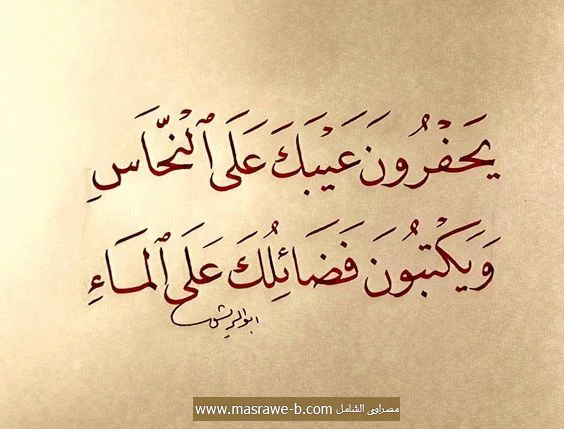 يَحْفُرُونَ عَيْبَكَ عَلَى ٱلْنَّحَاسِ
وَيَكْتبُونَ فَضَائِلُكَ عَلَى ٱلمَاءِ
ابوالريش
www.masrawe-b.com مصراوى الشامل